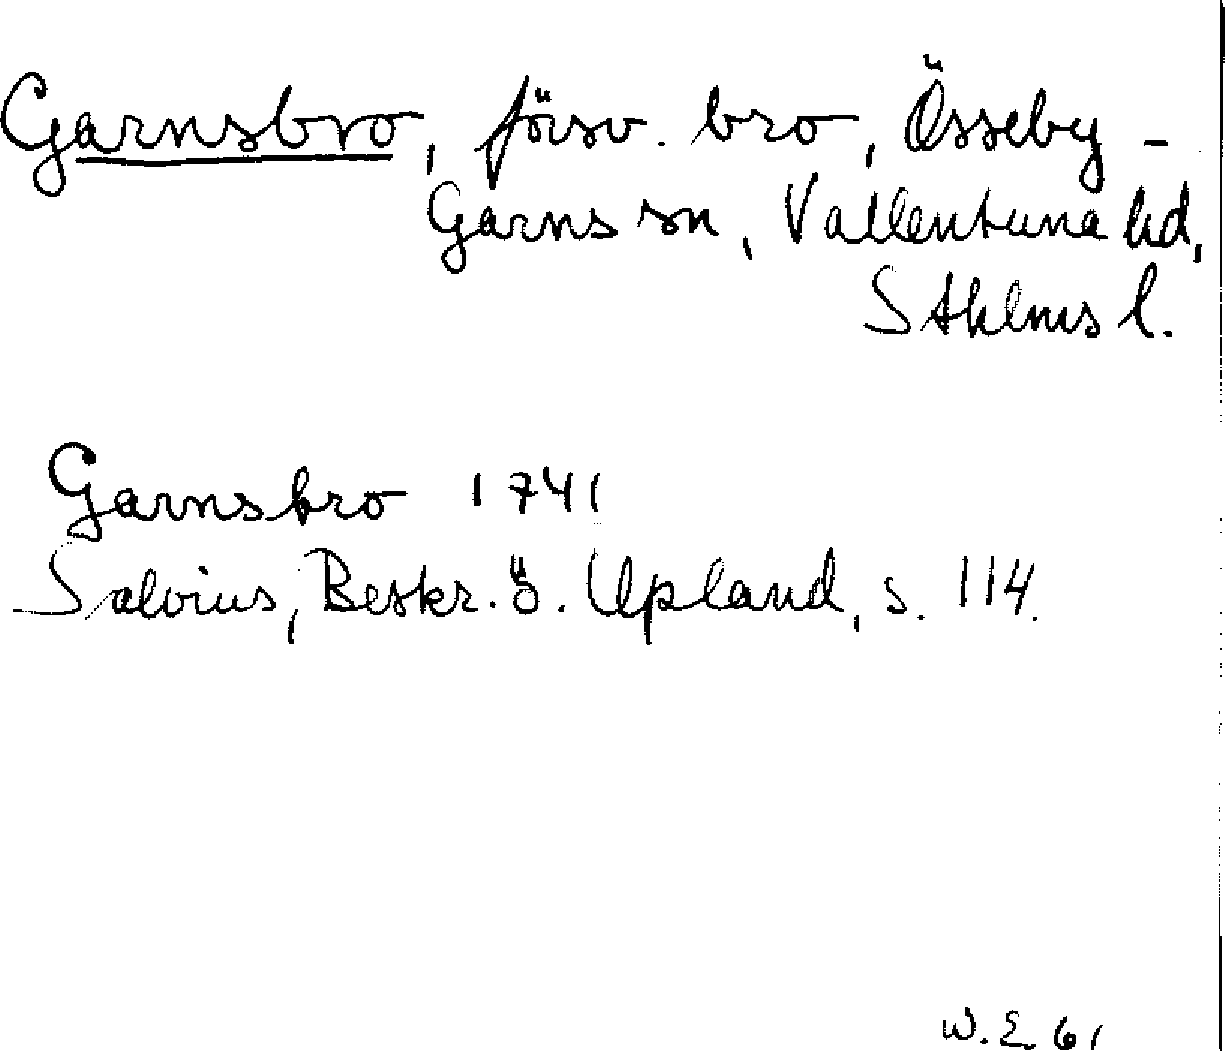 Garnsbro, försv. bro, Össeby-
Garns sn, Vallentuna hd,
Sthlms l.
Garnsbro 1741
Salvius, Beskr. ö. Upland, s. 114.
W. E. 61